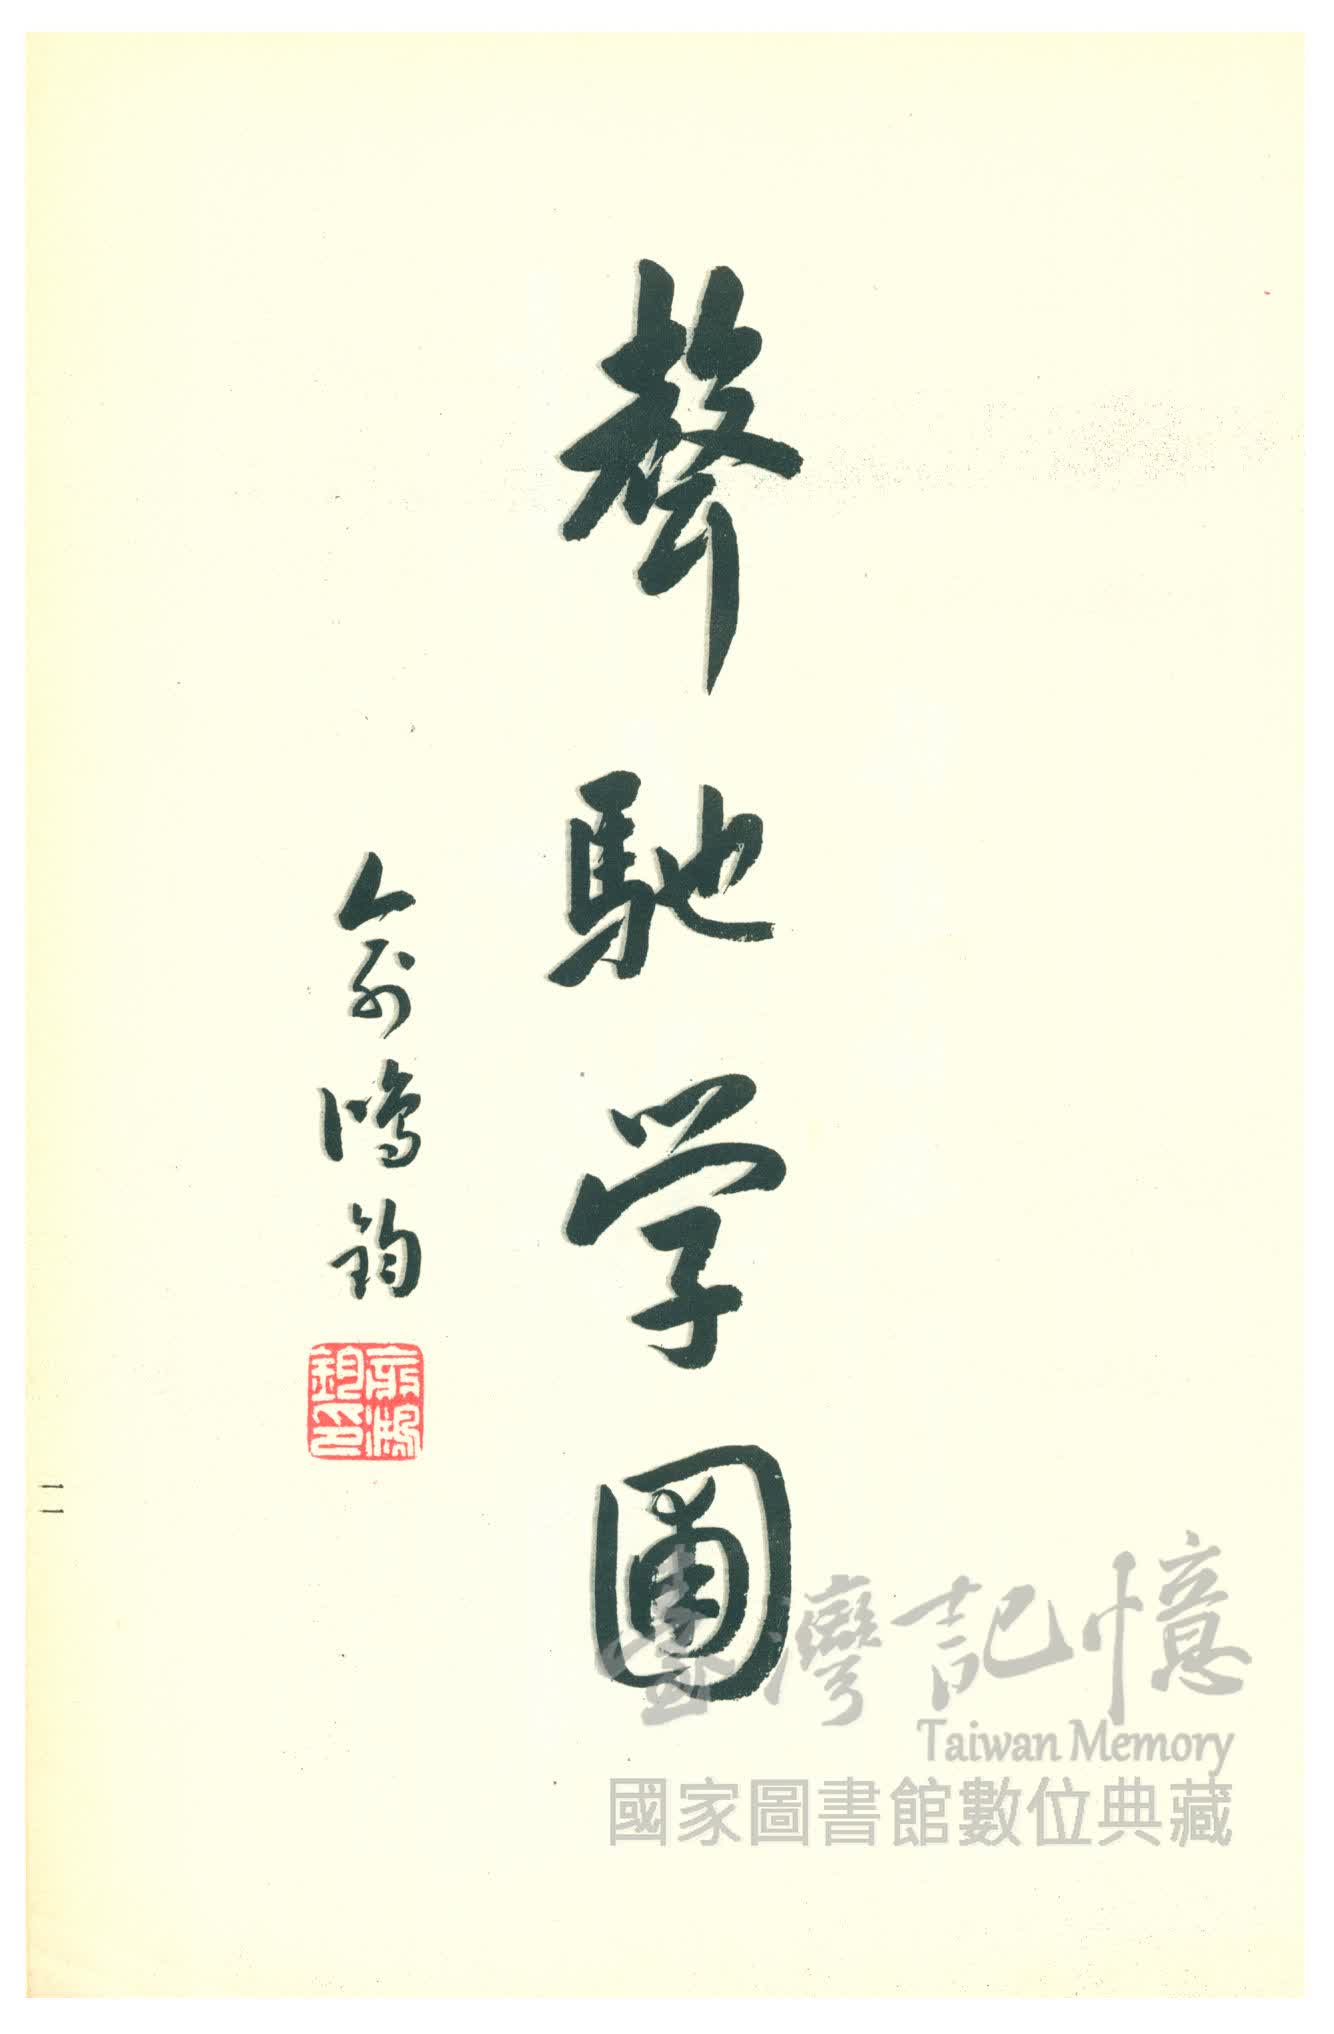 聲馳学圃
俞鴻鈞
俞鴻鈞印
一一
臺灣記憶
Taiwan Memory
國家圖書館數位典藏